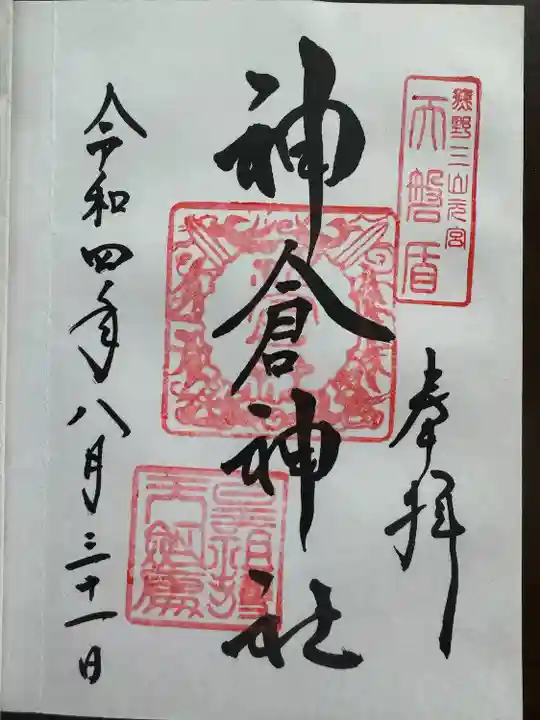 熊野三山元宮
天磐盾
奉拝
神倉神社
令和四年八月三十一日